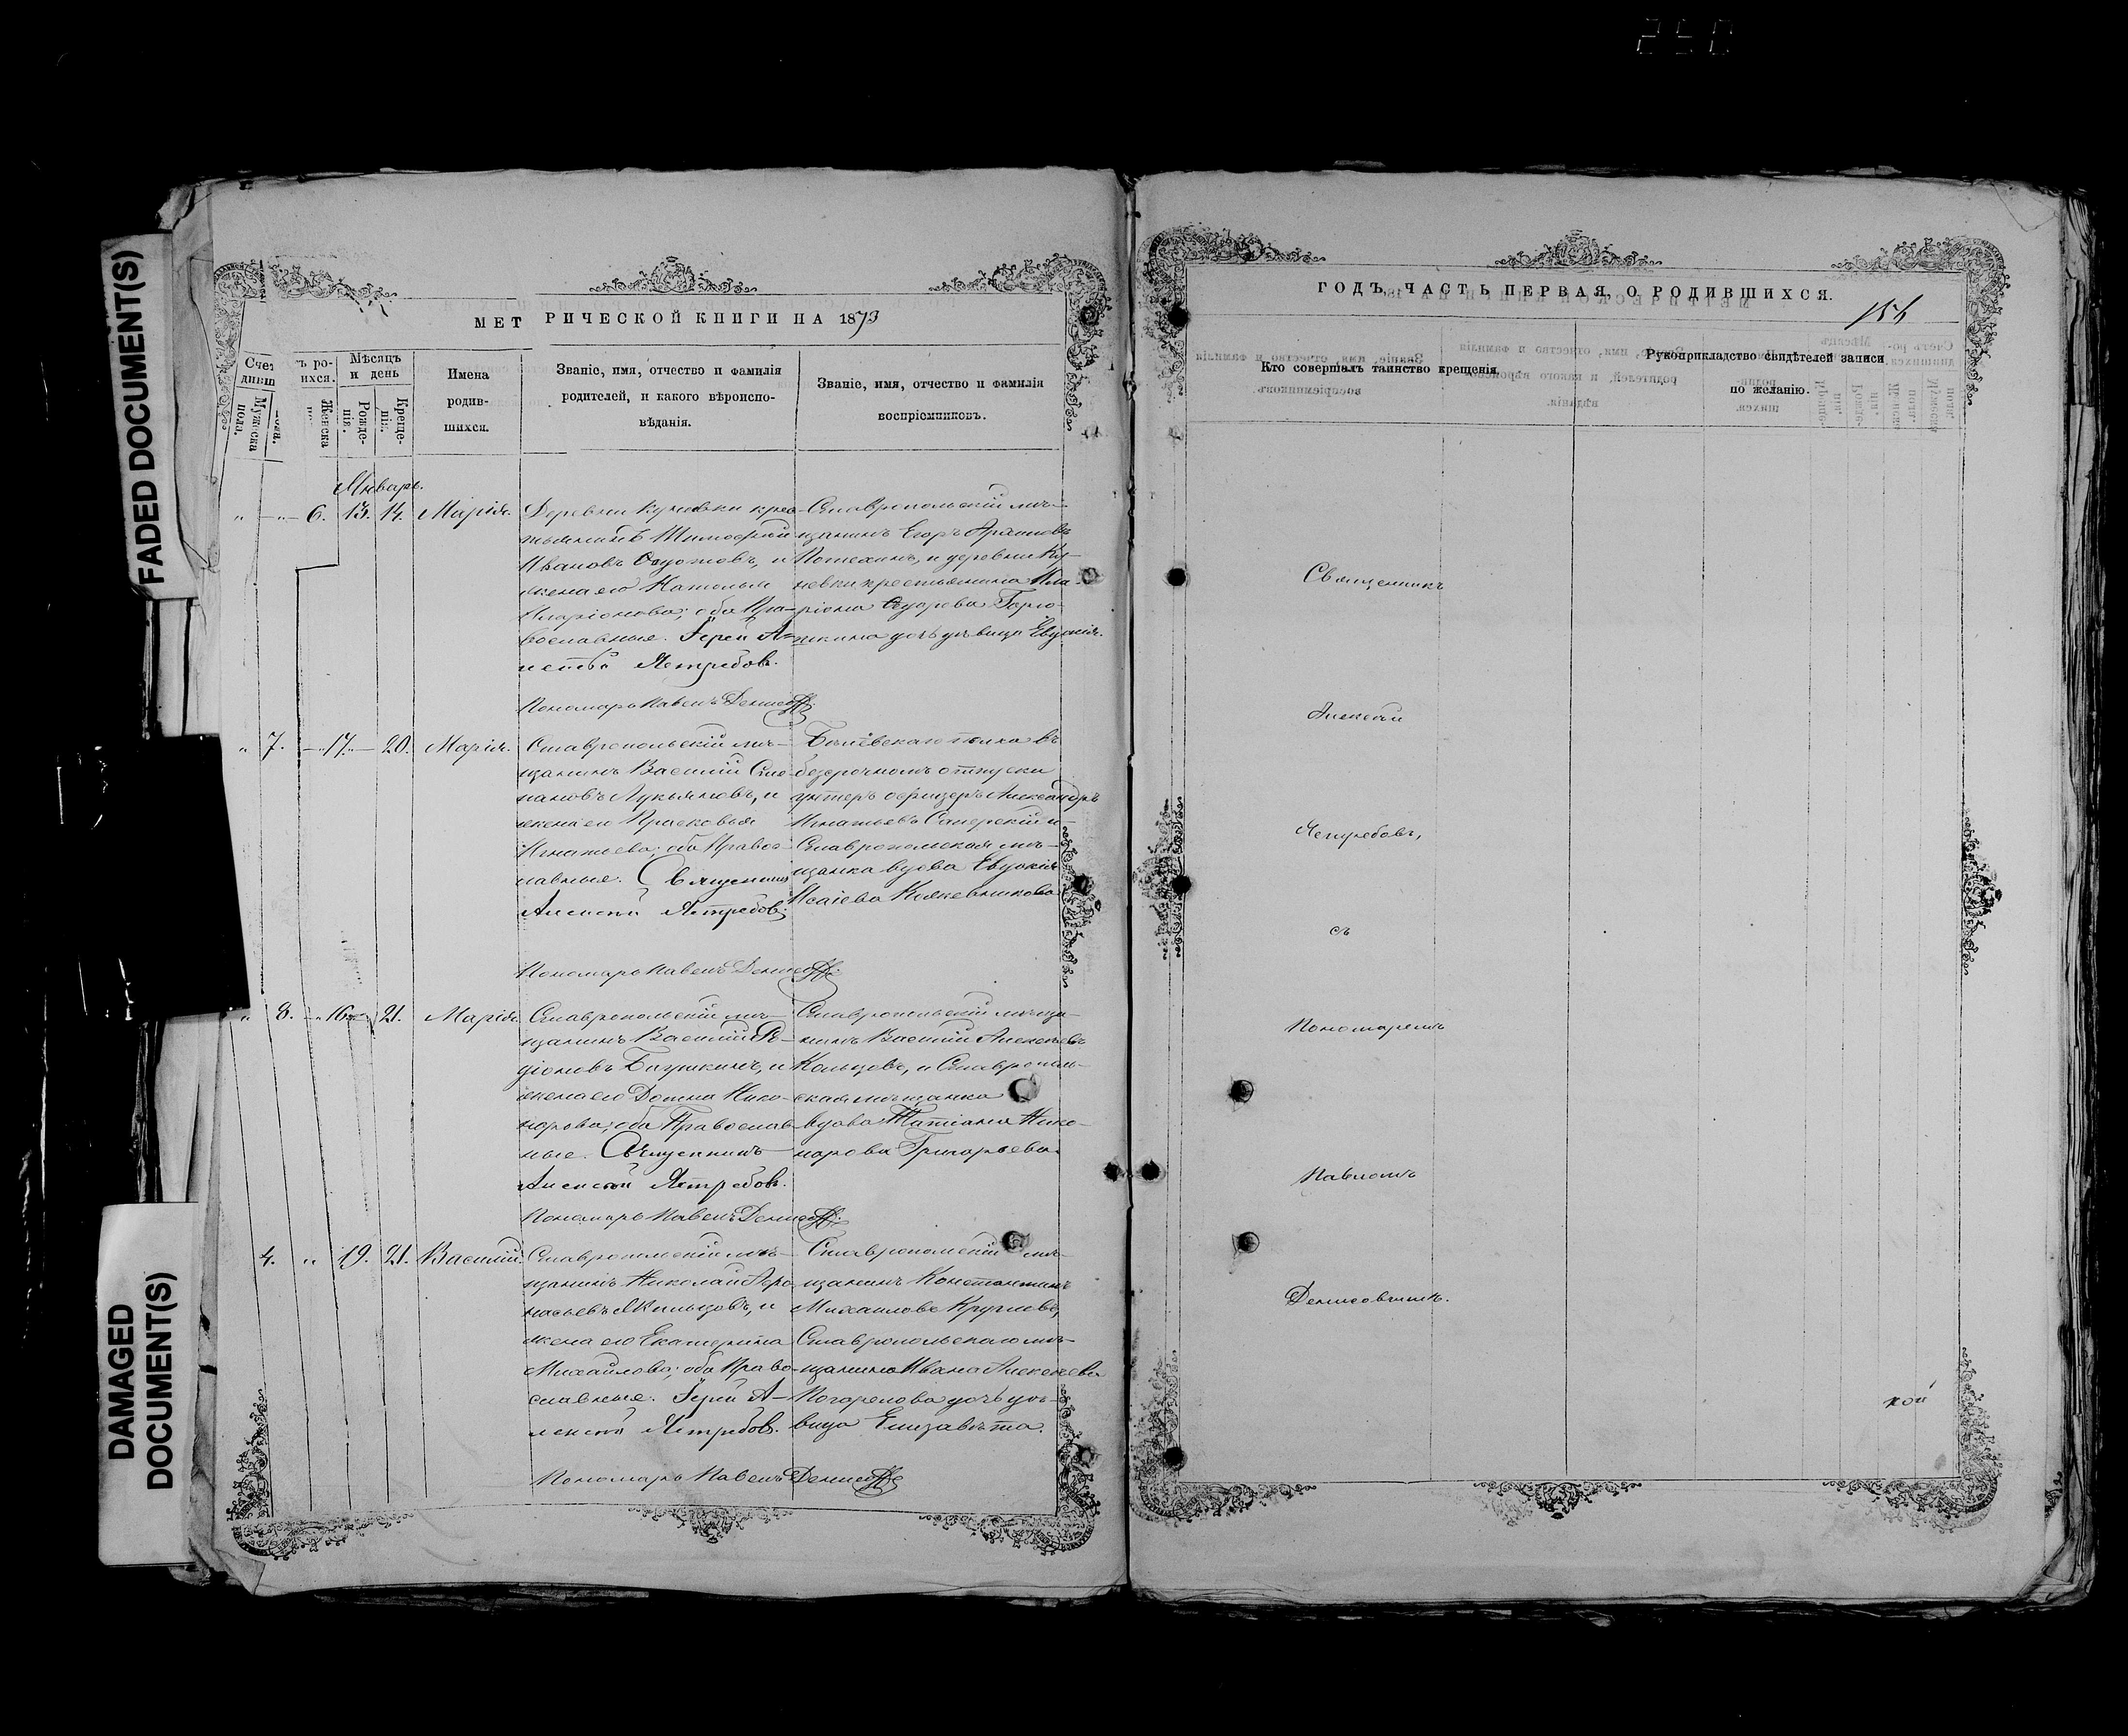 250
FADED DOCUMENT(S)
DAMAGED DOCUMENT(S)
МЕТРИЧЕСКОЙ КНИГИ НА 1873
Счетъ ро-
дившихся.
Мужеска
пола.
Женска
Мѣсяцъ
и день
Рожде-
нія.
Креще-
нія.
Имена
родив-
шихся.
Званіе, имя, отчество и фамилія
родителей, и какого вѣроиспо-
вѣданія.
Званіе, имя, отчество и фамилія
воспріемниковъ.
Январь.
6. 13. 14. Марія.
Деревни Куневки крес-
тьянинъ Тимофей
Ивановъ и
жена его Наталья
Иларіонова; оба Пра-
вославные. Іерей А-
лексѣй Ястребовъ.
Пономарь Павелъ Денисовъ
Ставропольскій мѣ-
щанинъ Егоръ
Потехинъ, и деревни Ку-
невки крестьянина Ила-
ріона
дочь дѣвица Евдокія.
7. 17. 20. Марія.
Ставропольскій мѣ-
щанинъ Василій Сте-
пановъ Лукьяновъ, и
жена его Прасковья
Игнатьева; оба Правос-
лавные. Священникъ
Алексѣй Ястребовъ.
Пономарь Павелъ Денисовъ
Бѣлевскаго полка въ
безсрочномъ отпуски
унтеръ офицеръ Александръ
Игнатьевъ и
Ставропольская мѣ-
щанка вдова Евдокія
Исаіева
8. 16. 21. Марія.
Ставропольскій мѣ-
щанинъ Василій Ро-
діоновъ и
жена его Домна Нико-
норова; оба Православ-
ные. Священникъ
Алексѣй Ястребовъ.
Пономарь Павелъ Денисовъ
Ставропольскій мѣща-
нинъ Василій Алексѣевъ
Кольцовъ, и Ставрополь-
ская мѣщанка
вдова Татіана Нико-
норова Григорьева.
4. 19. 21. Василій.
Ставропольскій мѣ-
щанинъ Николай Афо-
насьевъ и
жена его Екатерина
Михайлова; оба Право-
славные. Іерей А-
лексѣй Ястребовъ.
Пономарь Павелъ Денисовъ
Ставропольскій мѣ-
щанинъ Константинъ
Михаиловъ Кругловъ,
Ставропольскаго мѣ-
щанина Ивана Алексѣева
Погорелова дочь дѣ-
вица Елизавѣта.
ГОДЪ, ЧАСТЬ ПЕРВАЯ, О РОДИВШИХСЯ.
Кто совершалъ таинство крещенія.
Рукоприкладство свидѣтелей записи
по желанію.
Священникъ
Алексѣй
Ястребовъ,
съ
Пономаремъ
Павломъ
Денисовымъ.